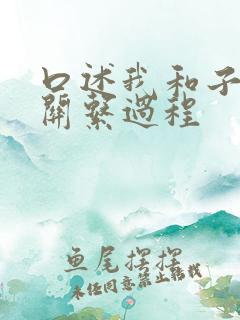 口述我和子
關繫過程
鱼尾摆摆
未经同意禁止转载